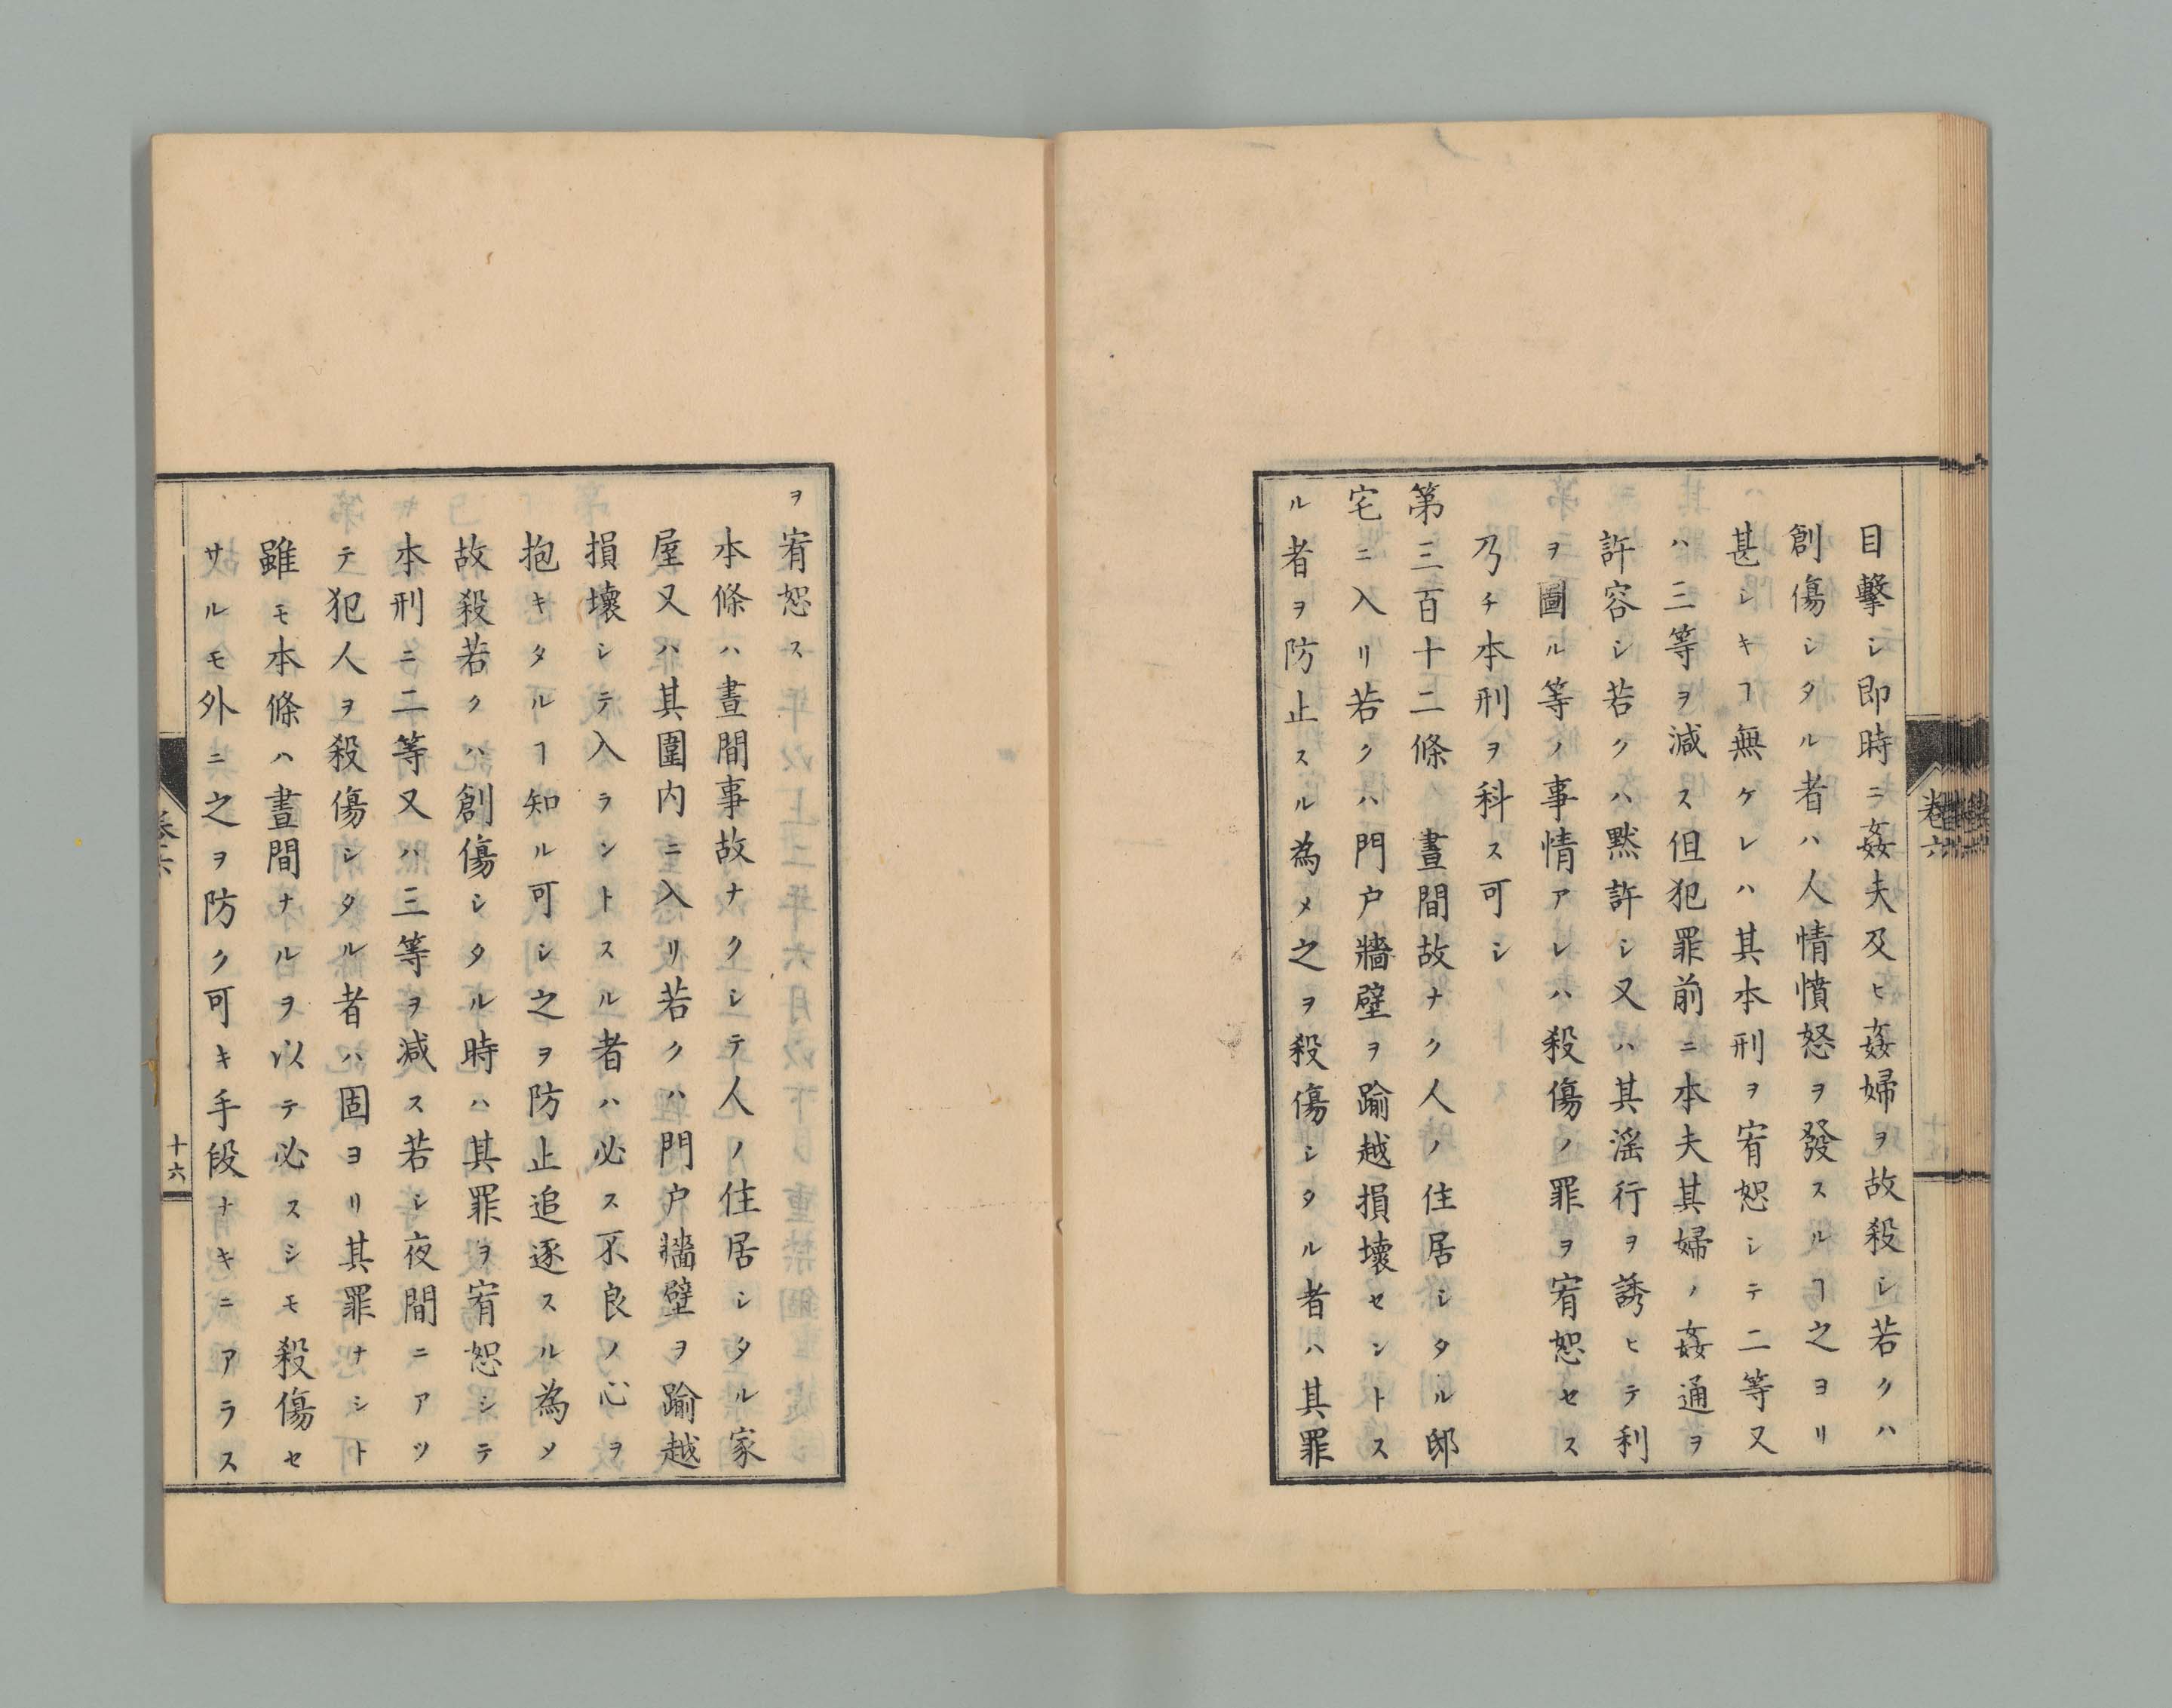 目擊シ即時ニ姦夫及ヒ姦婦ヲ故殺シ若クハ
創傷シタル者ハ人情憤怒ヲ發スルヿ之ヨリ
甚シキヿ無ケレハ其本刑ヲ宥恕シテ二等又
ハ三等ヲ減ス但犯罪前ニ本夫其婦ノ姦通ヲ
許容シ若クハ黙許シ又ハ其滛行ヲ誘ヒテ利
ヲ圖ル等ノ事情アレハ殺傷ノ罪ヲ宥恕セス
乃チ本刑ヲ科ス可シ
第三百十二條 晝間故ナク人ノ住居シタル邸
宅ニ入リ若クハ門戸牆壁ヲ踰越損壞セントス
ル者ヲ防止スル為メ之ヲ殺傷シタル者ハ其罪
卷六
ヲ宥恕ス
本條ハ晝間事故ナクシテ人ノ住居シタル家
屋又ハ其圍内ニ入リ若クハ門戸牆壁ヲ踰越
損壞シテ入ラントスル者ハ必ス不良ノ心ヲ
抱キタルヿ知ル可シ之ヲ防止追逐スル為メ
故殺若クハ創傷シタル時ハ其罪ヲ宥恕シテ
本刑ニ二等又ハ三等ヲ減ス若シ夜間ニアツ
テ犯人ヲ殺傷シタル者ハ固ヨリ其罪ナシト
雖モ本條ハ晝間ナルヲ以テ必スシモ殺傷セ
サルモ外ニ之ヲ防ク可キ手段ナキニアラス
卷六
十六